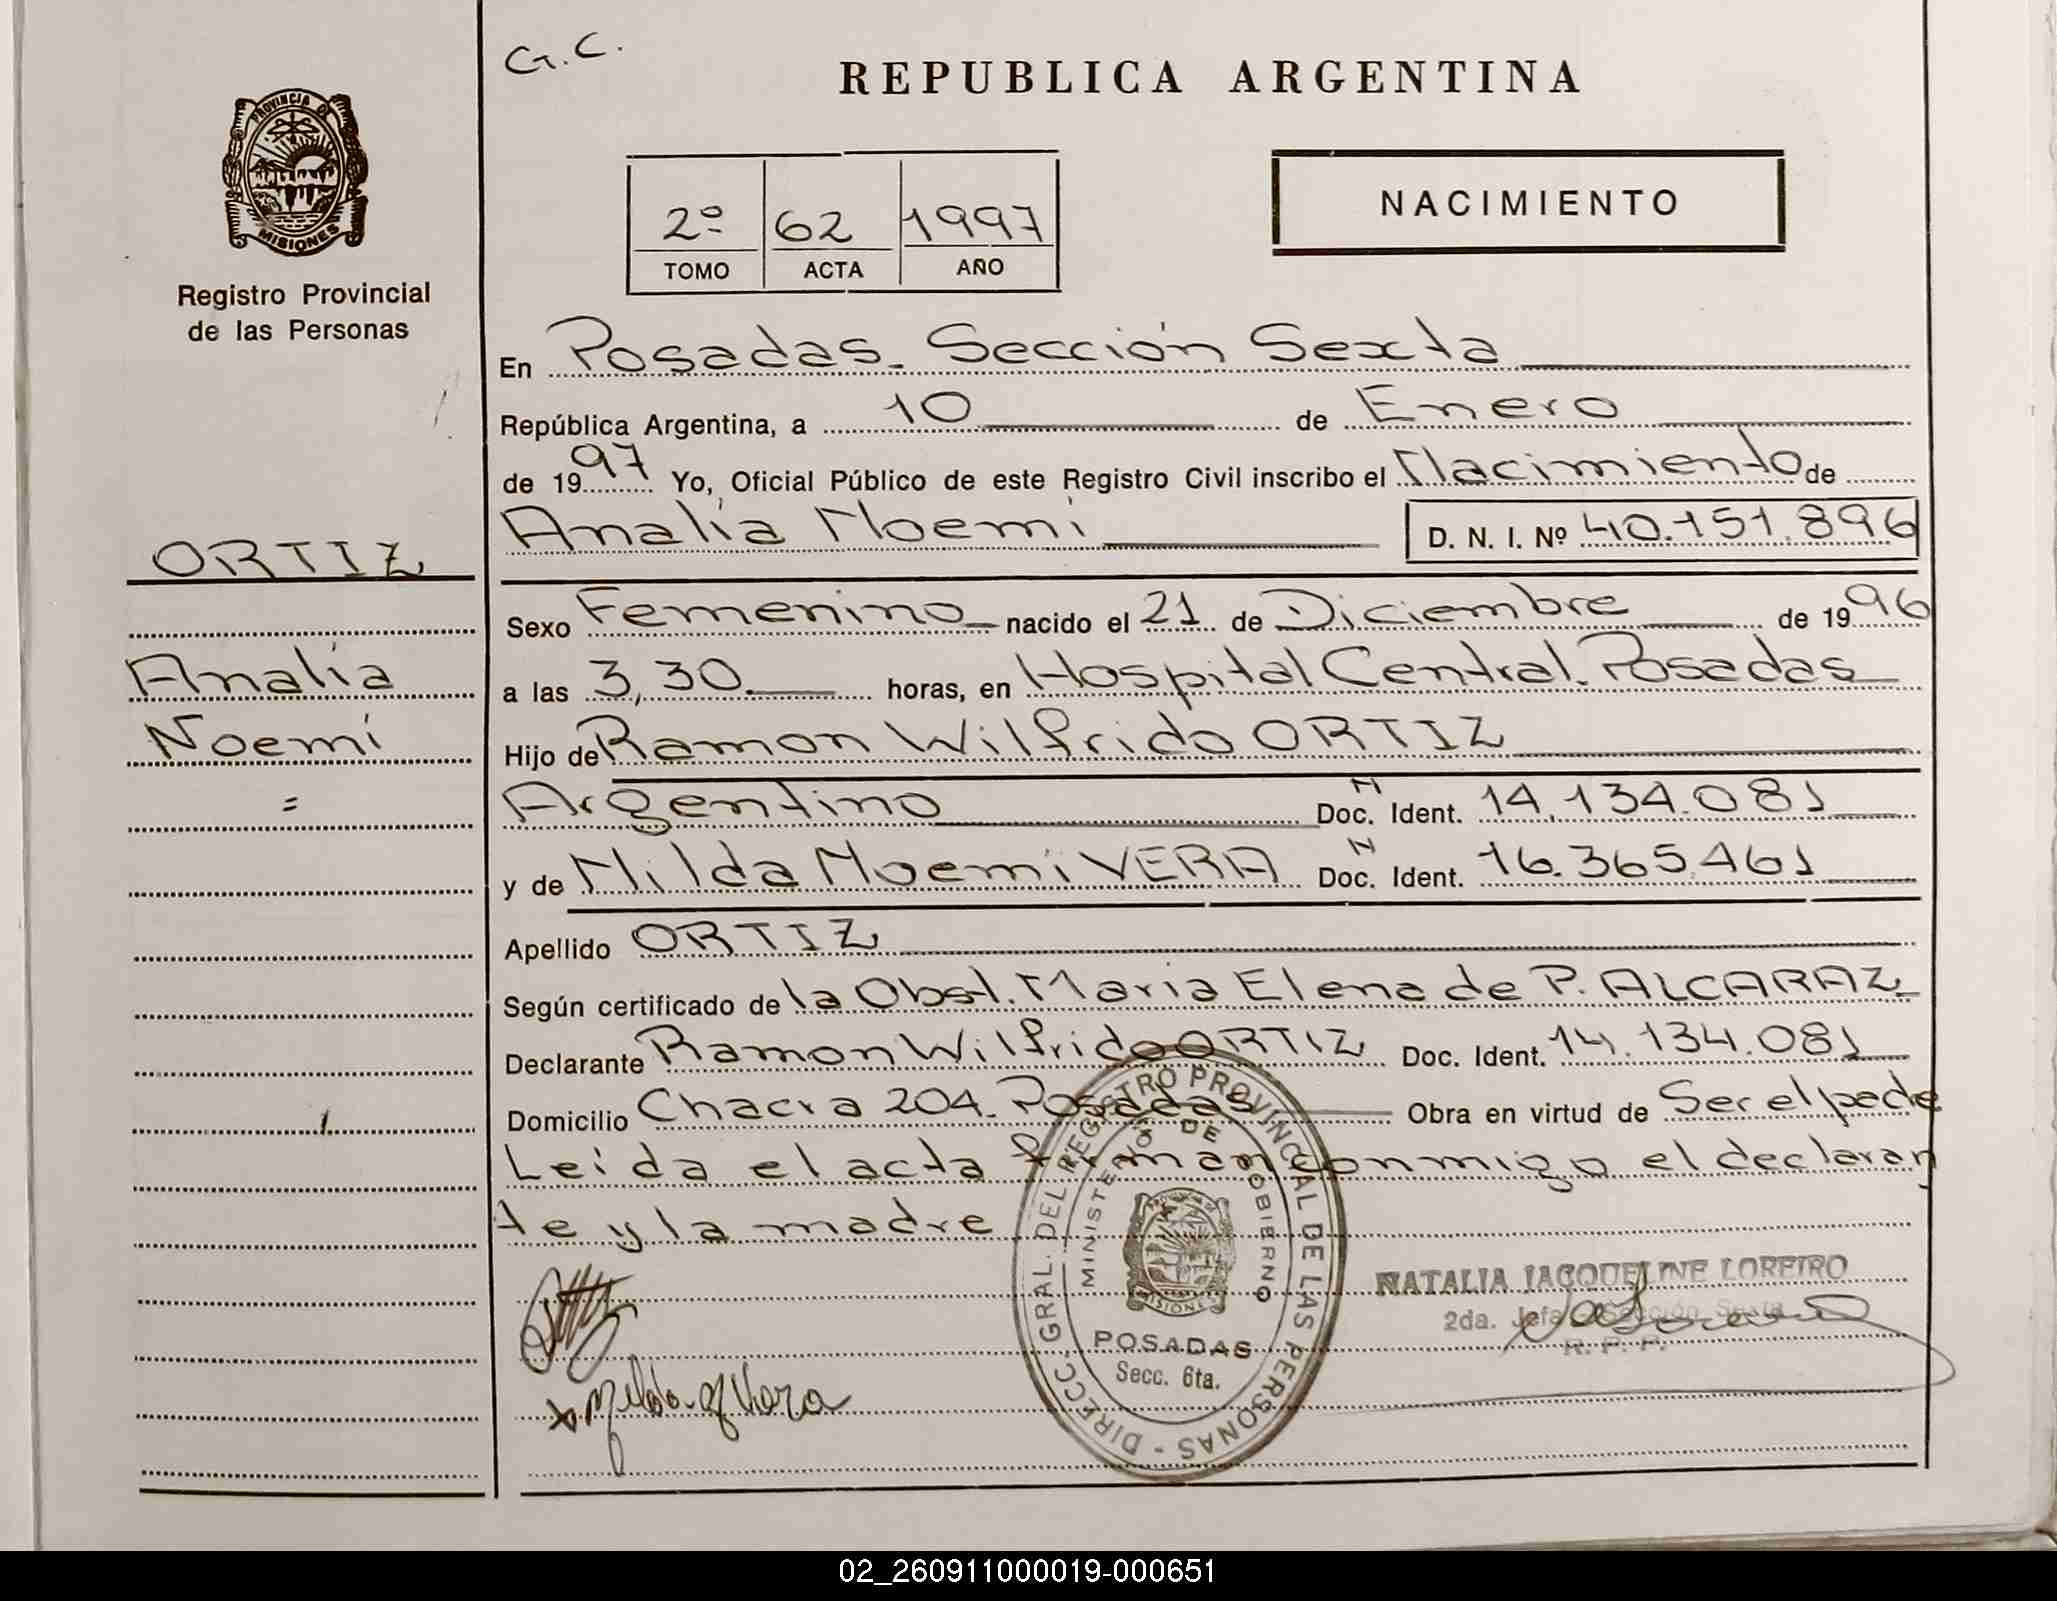 G.C.
REPUBLICA ARGENTINA
PROVINCIA DE
MISIONES
Registro Provincial
de las Personas
2º 62 1997
TOMO ACTA AÑO
NACIMIENTO
En Posadas - Sección Sexta
República Argentina, a 10 de Enero
de 1997 Yo, Oficial Público de este Registro Civil inscribo el Nacimiento de
Analía Noemí D. N. I. Nº 40.151.896
ORTIZ
Sexo Femenino nacido el 21 de Diciembre de 1996
Analía
a las 3,30 horas, en Hospital Central. Posadas
Noemí
Hijo de Ramon Wilfrido ORTIZ
=
Argentino Doc. N Ident. 14.134.081
y de Milda Noemi VERA Doc. N Ident. 16.365.461
Apellido ORTIZ
Según certificado de la Obst. Maria Elena de P. ALCARAZ
Declarante Ramon Wilfrido ORTIZ Doc. Ident. 14.134.081
Domicilio Chacra 204. Posadas Obra en virtud de Ser el padre
Leida el acta firman conmigo el declaran
te y la madre
DIRECC. GRAL. DEL REGISTRO PROVINCIAL DE LAS PERSONAS -
MINISTERIO DE GOBIERNO
MISIONES
POSADAS
Secc. 6ta.
NATALIA JACQUELINE LOREIRO
2da. Jefa - Sección Sexta
R. P. P.
02_260911000019-000651